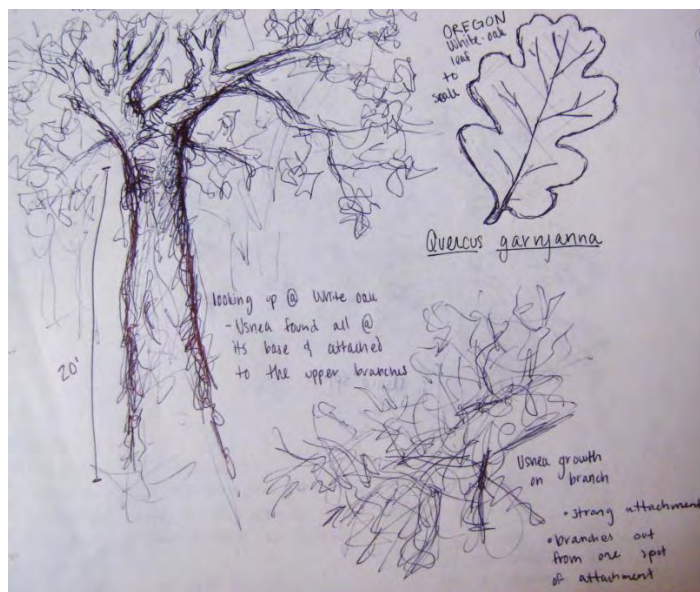 OREGON
White-oak
leaf
to
scale
Quercus garryanna
looking up @ White oak
- Usnea found all @
its base & attached
to the upper branches
20'
Usnea growth
on branch
• strong attachment
• branches out
from one spot
of attachment